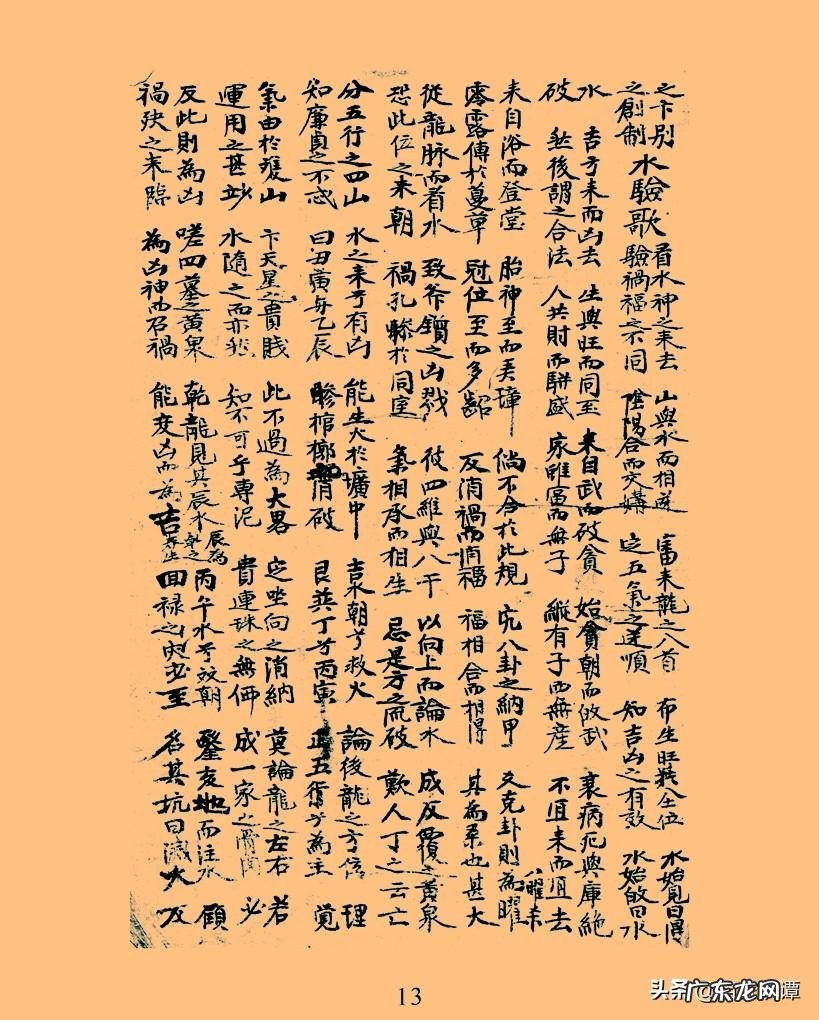 之卞别 看水神之来去 山與水而相 審来龍之八首 布生旺 八位 水始見曰得
之創制 水驗歌 驗禍福之不同 陰陽合而交媾 定五氣之逆順 知吉凶之有效 水始啟曰水
水 吉方来而凶去 生與旺而同至 来自武而破貪 始貪朝而啟武 衰病死與庫絶
破 然後謂之合法 人共財而駢盛 家雖富而無子 縱有子而無産 不宜来而宜去
来自浴而登堂 胎神至而弄璋 倘不合於此規 究八卦之納甲 又克卦則為曜 八曜来
零露傳於蔓草 冠位至而多齠 反消禍而消福 福相合而相得 其為系也甚大
從龍脉而看水 致斧鑕之凶戮 彼四維與八干 以向上而論水 成反覆之黃泉
恐此位之来朝 禍孔慘於同室 氣相承而相生 忌是方之流破 歎人丁之云亡
分五行之四山 水之来兮有凶 能生火於壙中 吉水朝兮救火 論後龍之方位 理
知廉貞之不惑 曰丑寅与乙辰 慘棺槨 消破 艮 丁兮丙寅 正五行兮為主 覚
氣由於雙山 卞天星之貴賤 此不過為大畧 定坐向之消納 莫論龍之左右 若
運用之甚妙 水隨之而亦 知不可乎專泥 貴連珠之無価 成一家之骨肉 必
反此則為凶 嗟四墓之黄泉 乾龍見其辰水 辰為乾之 丙午水兮 朝 鑿亥地而注水 顧
禍殃之来臨 為凶神而召禍 能变凶而為吉 回禄之灾必至 名其坑曰滅火 反
13
头条 广东龙网 潭